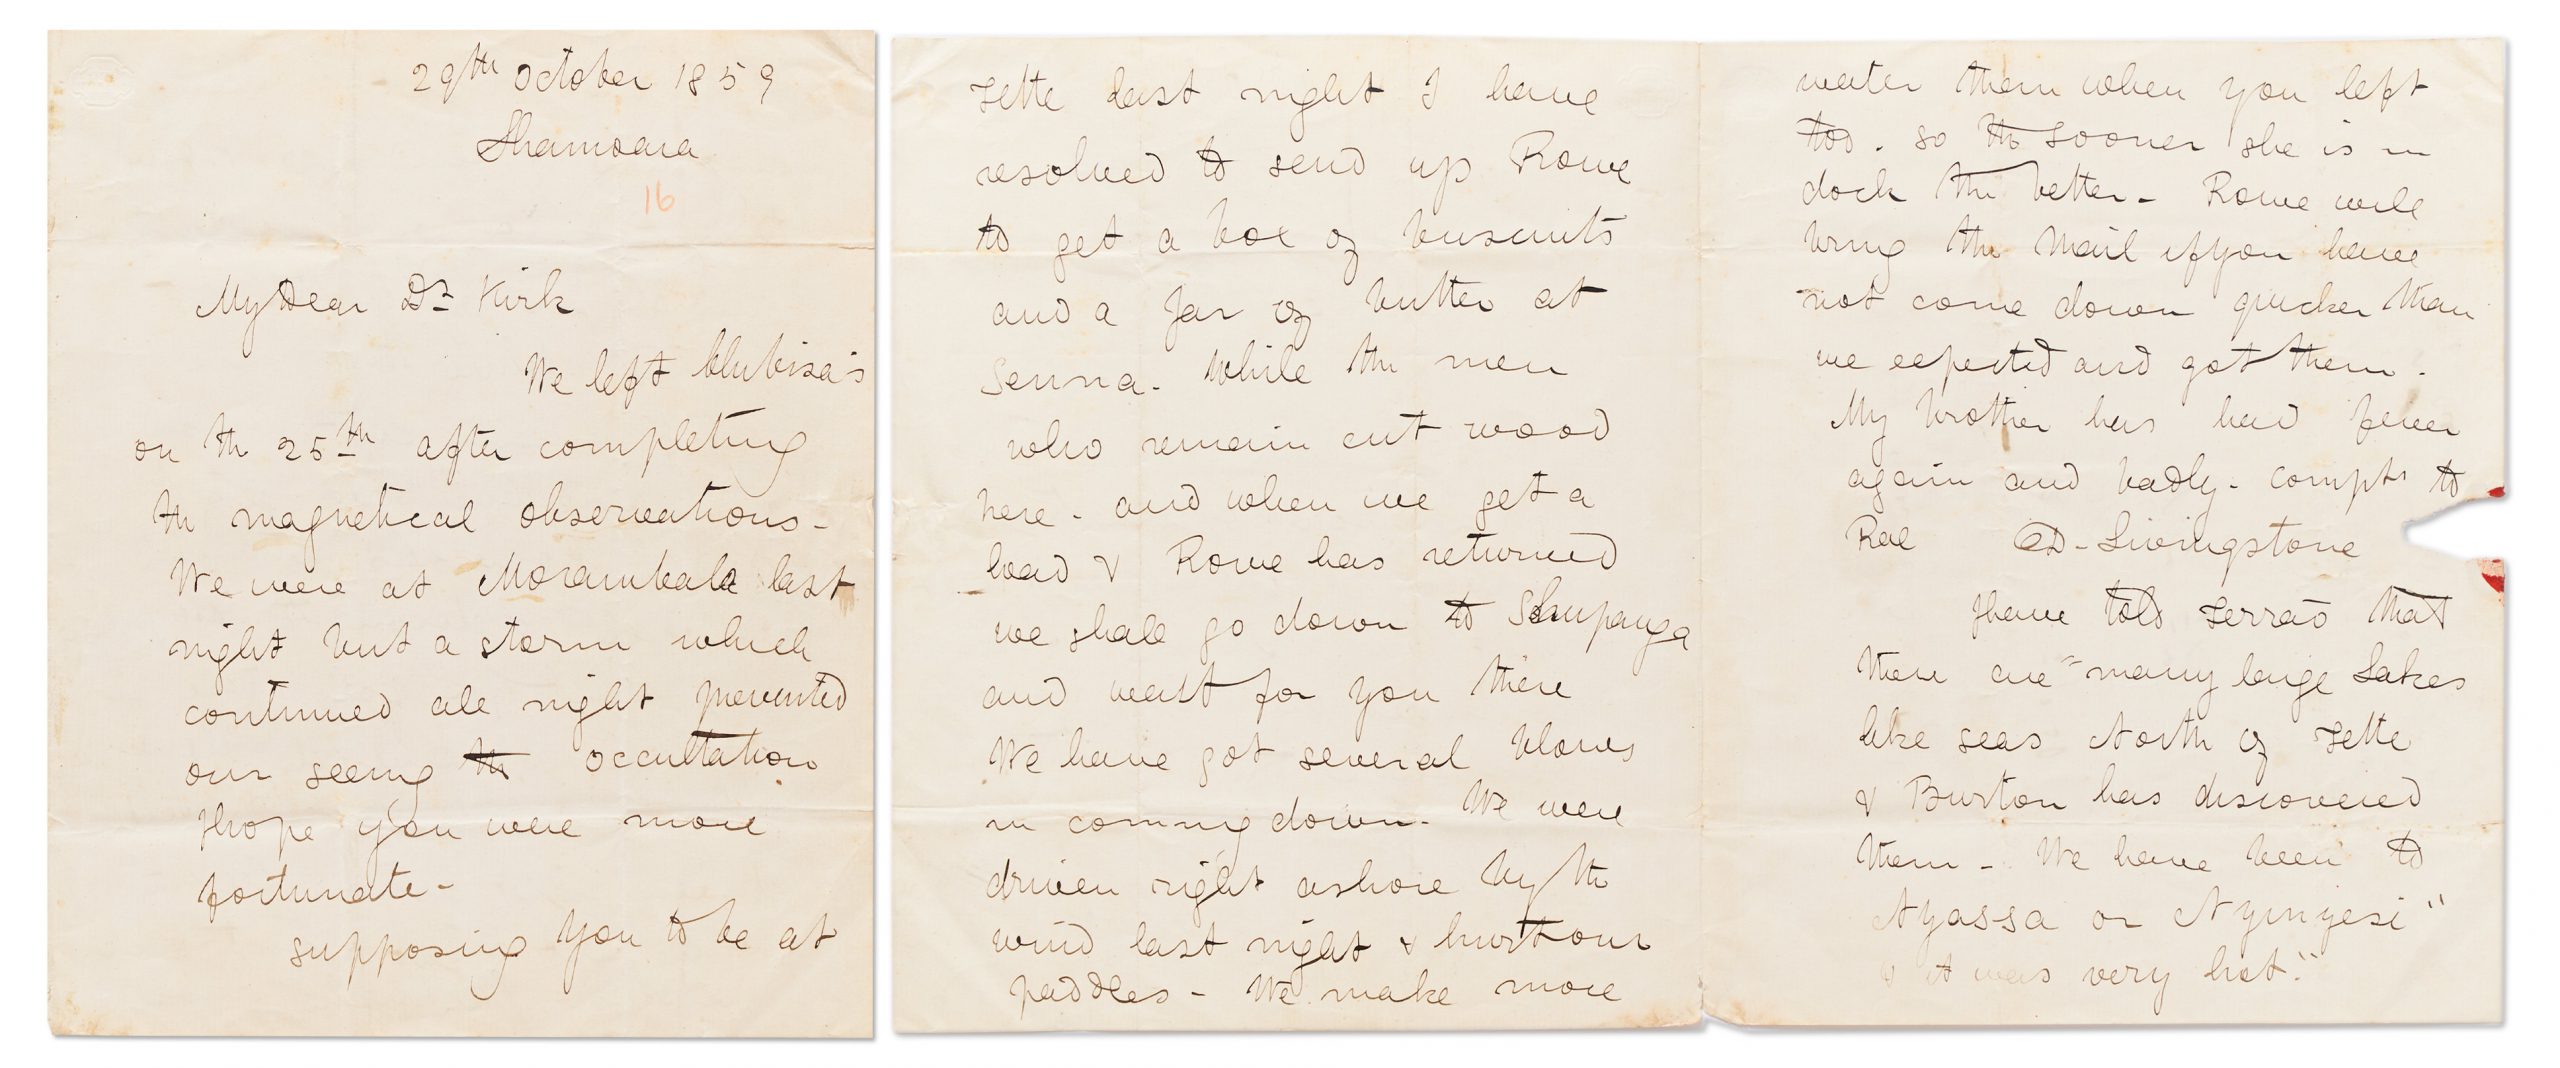 29th October 1859
Shamoara
16
My Dear Dr Kirk
We left Chibisa's
on the 25th after completing
the magnetical observations -
We were at Morambala last
night but a storm which
continued all night prevented
our seeing the occultation
I hope you were more
fortunate -
supposing you to be at
Tette last night I have
resolved to send up Rowe
to get a box of buiscuits
and a Jar of butter at
Senna - While the men
who remain cut wood
here - and when we get a
load & Rowe has returned
we shall go down to Shupanga
and wait for you there
We have got several blows
in coming down - We were
driven right ashore by the
wind last night & hurt our
paddles - We make more
water than when you left
too. so the sooner she is in
dock the better - Rowe will
bring the Mail if you have
not come down quicker than
we expected and got them -
My brother has had fever
again and badly - compts to
Rae D - Livingstone
I have told Serrão that
there are "many large Lakes
like seas North of Tette
& Burton has discovered
them - We have been to
Nyassa or Nyinyesi"
& it was very hot."